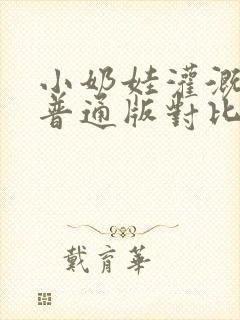 小奶娃灌溉
普通版對比
戴育華